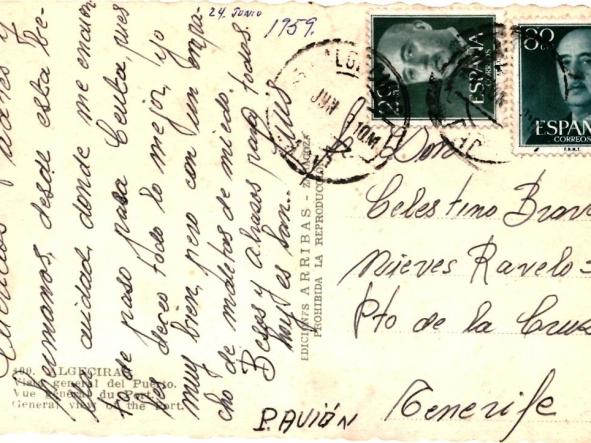 24 JUNIO
1959.
Queridos Padres y
hermanos, desde esta be-
lla ciudad, donde me encuen-
tro de paso para Ceuta, pues
les deseo todo lo mejor, yo
muy bien, pero con un empa-
cho de maletas de miedo.
Besos y abrazos para todos.
Hoy es San
400. ALGECIRAS
Vista general del Puerto.
Vue générale du Port.
General view of the Port.
P. AVIÓN
EDICIONES ARRIBAS - ZARAGOZA
PROHIBIDA LA REPRODUCCIÓN
JUN
10M
ESPAÑA
CORREOS
80
ESPAÑA
CORREOS
Don
Celestino Bravo
Nieves Ravelo=
Pto de la Cruz
Tenerife